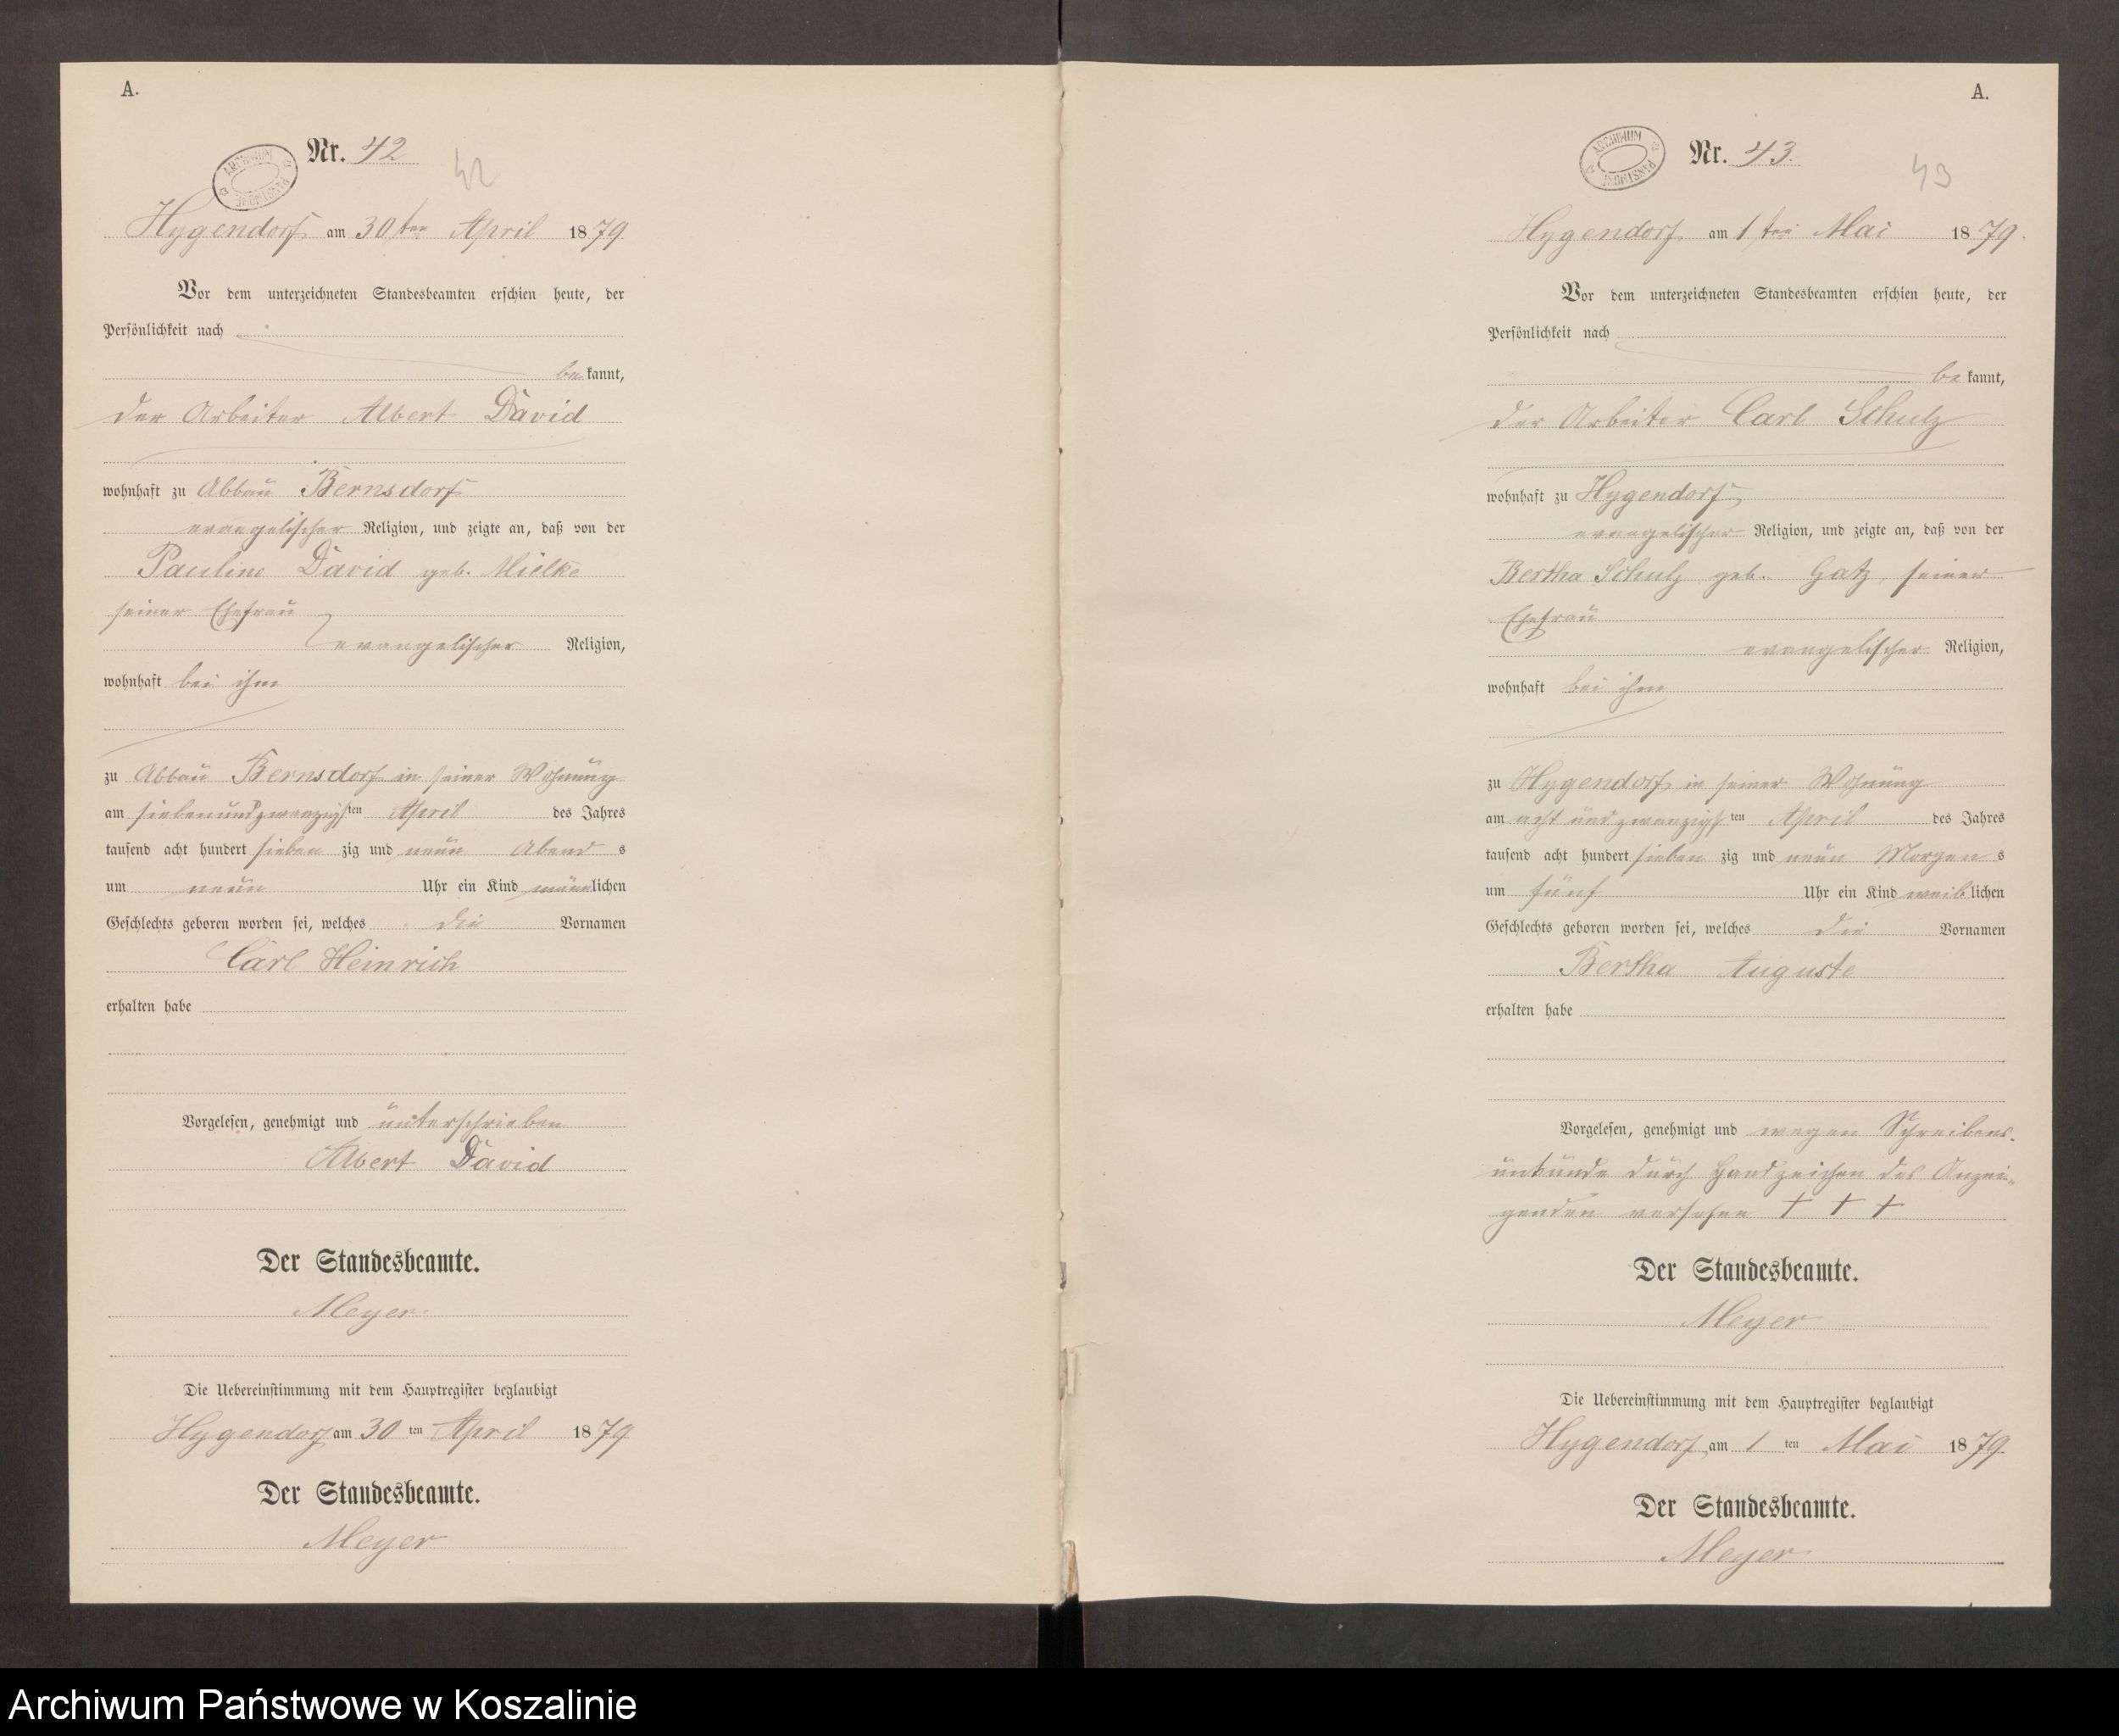 A.
ARCHIWUM PAŃSTWOWE
Nr. 42
42
Hygendorf am 30ten April 1879
Vor dem unterzeichneten Standesbeamten erschien heute, der
Persönlichkeit nach
bekannt,
der Arbeiter Albert David
wohnhaft zu Abbau Bernsdorf
evangelischer Religion, und zeigte an, daß von der
Pauline David geb. Mielke
seiner Ehefrau
evangelischer Religion,
wohnhaft bei ihm
zu Abbau Bernsdorf in seiner Wohnung
am siebenundzwanzigsten April des Jahres
tausend acht hundert siebenzig und neun Abends
um neun Uhr ein Kind männlichen
Geschlechts geboren worden sei, welches die Vornamen
Carl Heinrich
erhalten habe
Vorgelesen, genehmigt und unterschrieben
Albert David
Der Standesbeamte.
Meyer
Die Uebereinstimmung mit dem Hauptregister beglaubigt
Hygendorf am 30 ten April 1879
Der Standesbeamte.
Meyer
A.
ARCHIWUM PAŃSTWOWE
Nr. 43.
43
Hygendorf am 1ten Mai 1879.
Vor dem unterzeichneten Standesbeamten erschien heute, der
Persönlichkeit nach
bekannt,
der Arbeiter Carl Schulz
wohnhaft zu Hygendorf
evangelischer Religion, und zeigte an, daß von der
Bertha Schulz geb. Gatz, seiner
Ehefrau
evangelischer Religion,
wohnhaft bei ihm
zu Hygendorf in seiner Wohnung
am acht und zwanzigsten April des Jahres
tausend acht hundert siebenzig und neun Morgens
um fünf Uhr ein Kind weiblichen
Geschlechts geboren worden sei, welches die Vornamen
Bertha Auguste
erhalten habe
Vorgelesen, genehmigt und wegen Schreibens-
unkunde durch Handzeichen des Anzei-
genden versehen + + +
Der Standesbeamte.
Meyer
Die Uebereinstimmung mit dem Hauptregister beglaubigt
Hygendorf am 1 ten Mai 1879.
Der Standesbeamte.
Meyer
Archiwum Państwowe w Koszalinie